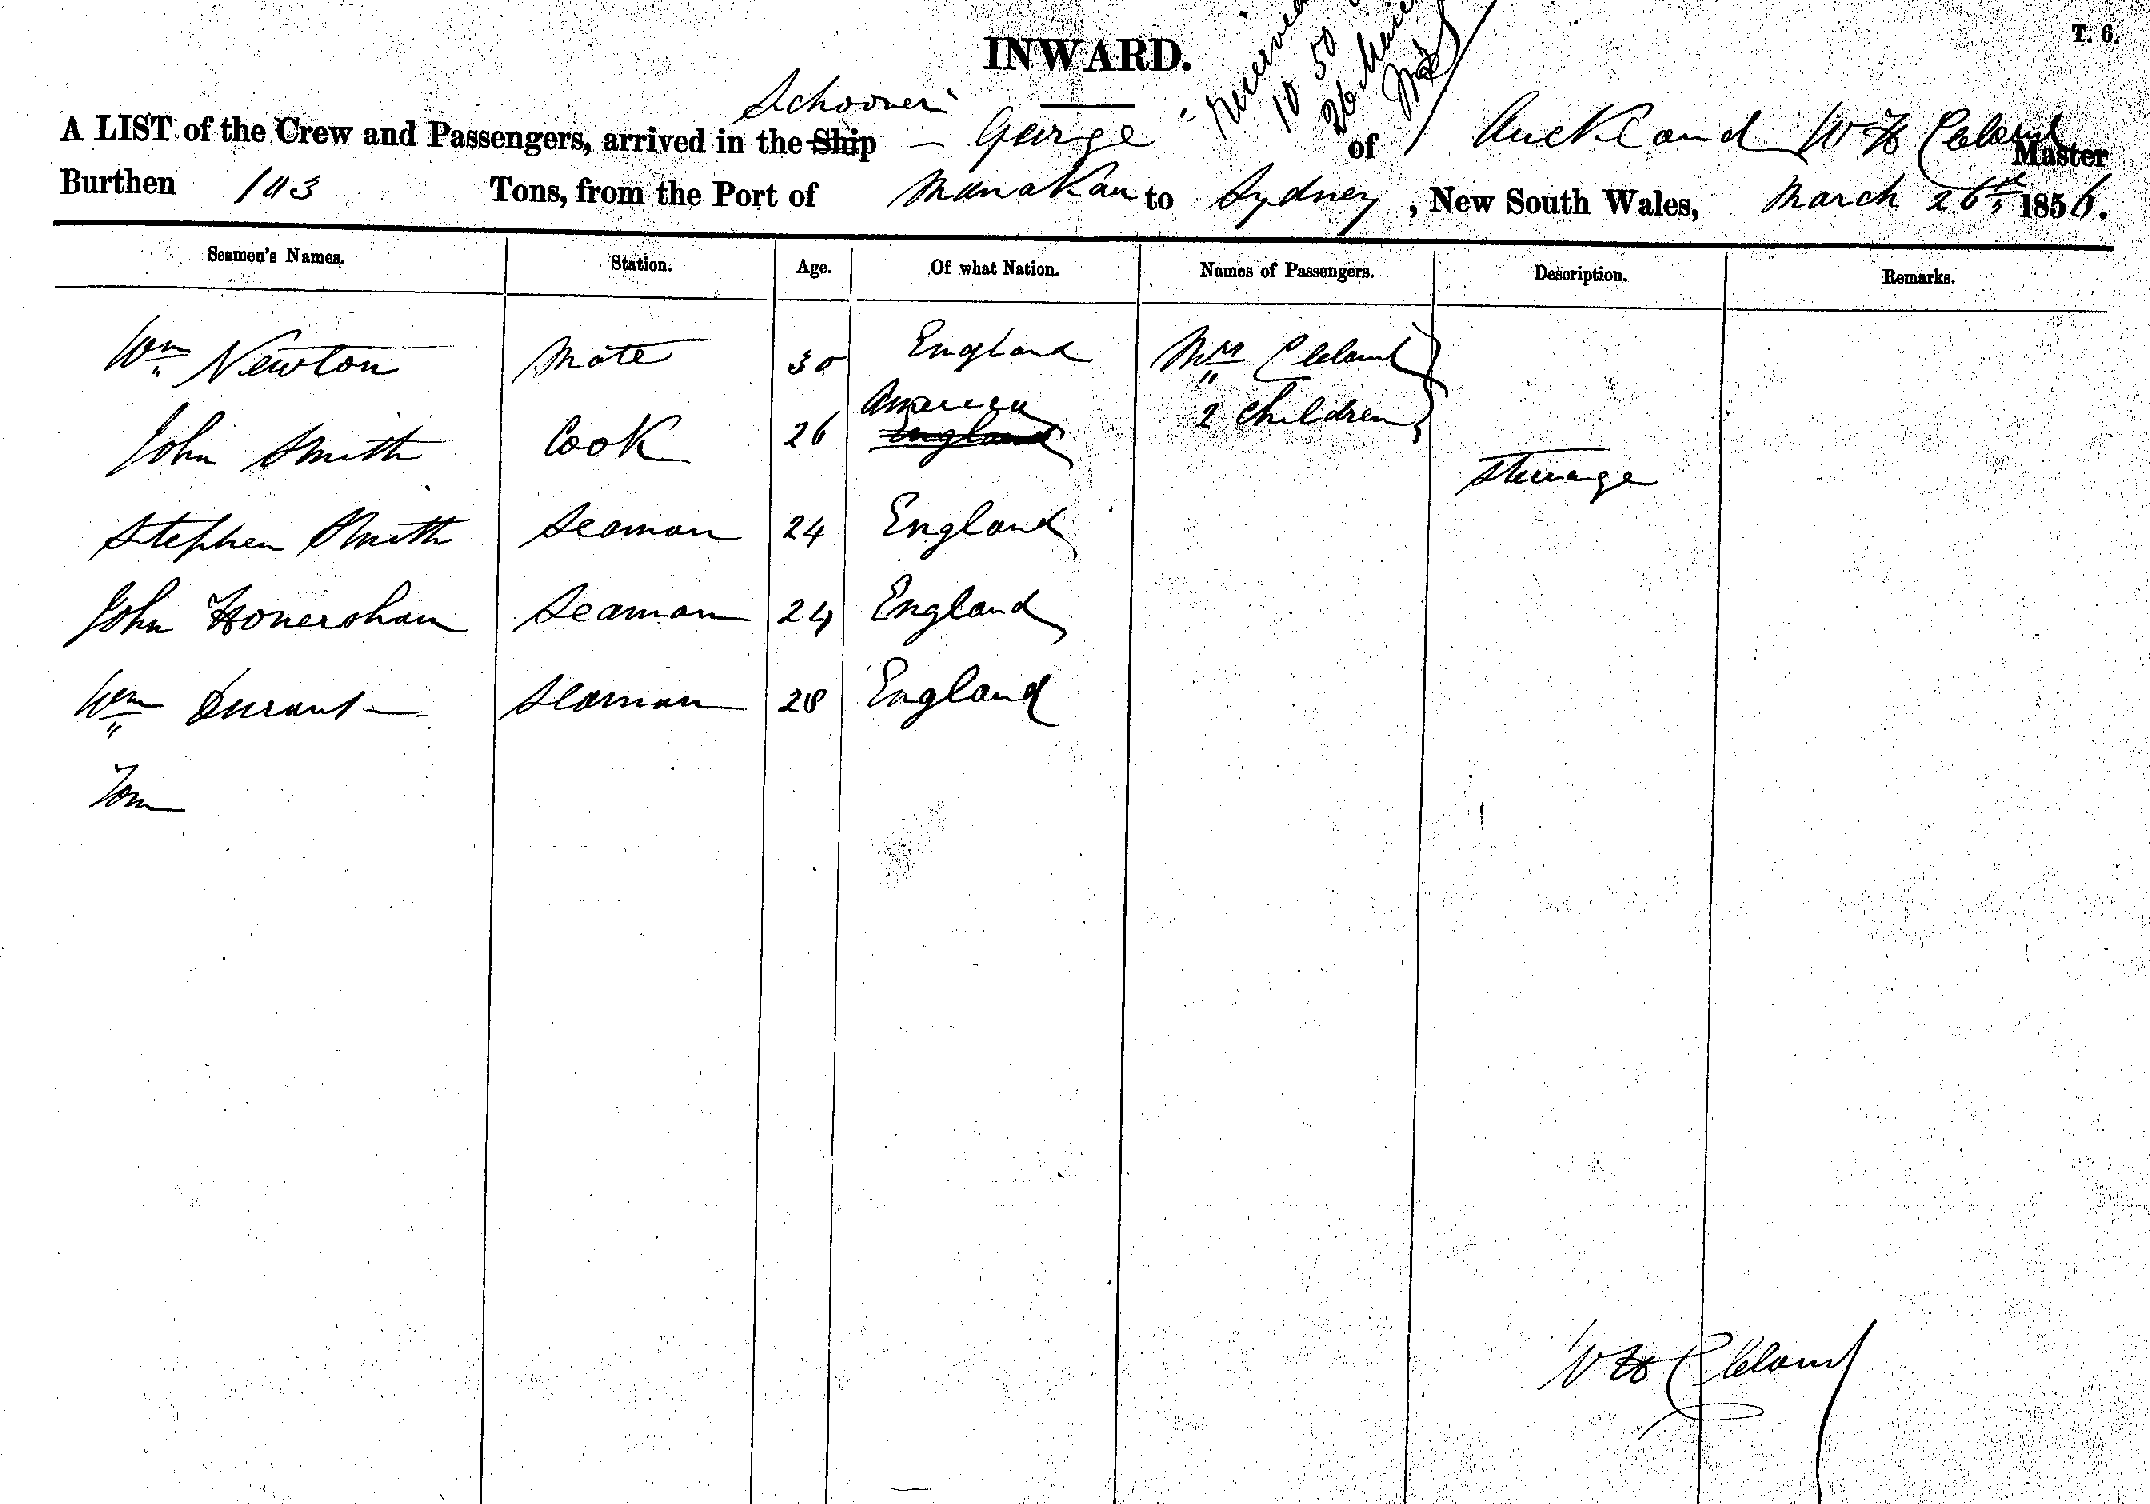 T. 6.
INWARD.
Received
10 50
26 March
Schooner
A LIST of the Crew and Passengers, arrived in the Ship George of Auckland W H Cleland Master
Burthen 143 Tons, from the Port of Manakau to Sydney, New South Wales, March 26th 1856.
Seamen's Names. Station. Age. Of what Nation. Names of Passengers. Description. Remarks.
Wm Newton Mate 30 England Mrs Cleland
America
2 Children
John Smith Cook 26 England
Steerage
Stephen Smith Seaman 24 England
John Honersham Seaman 24 England
Wm Durant Seaman 28 England
Tom
W H Cleland